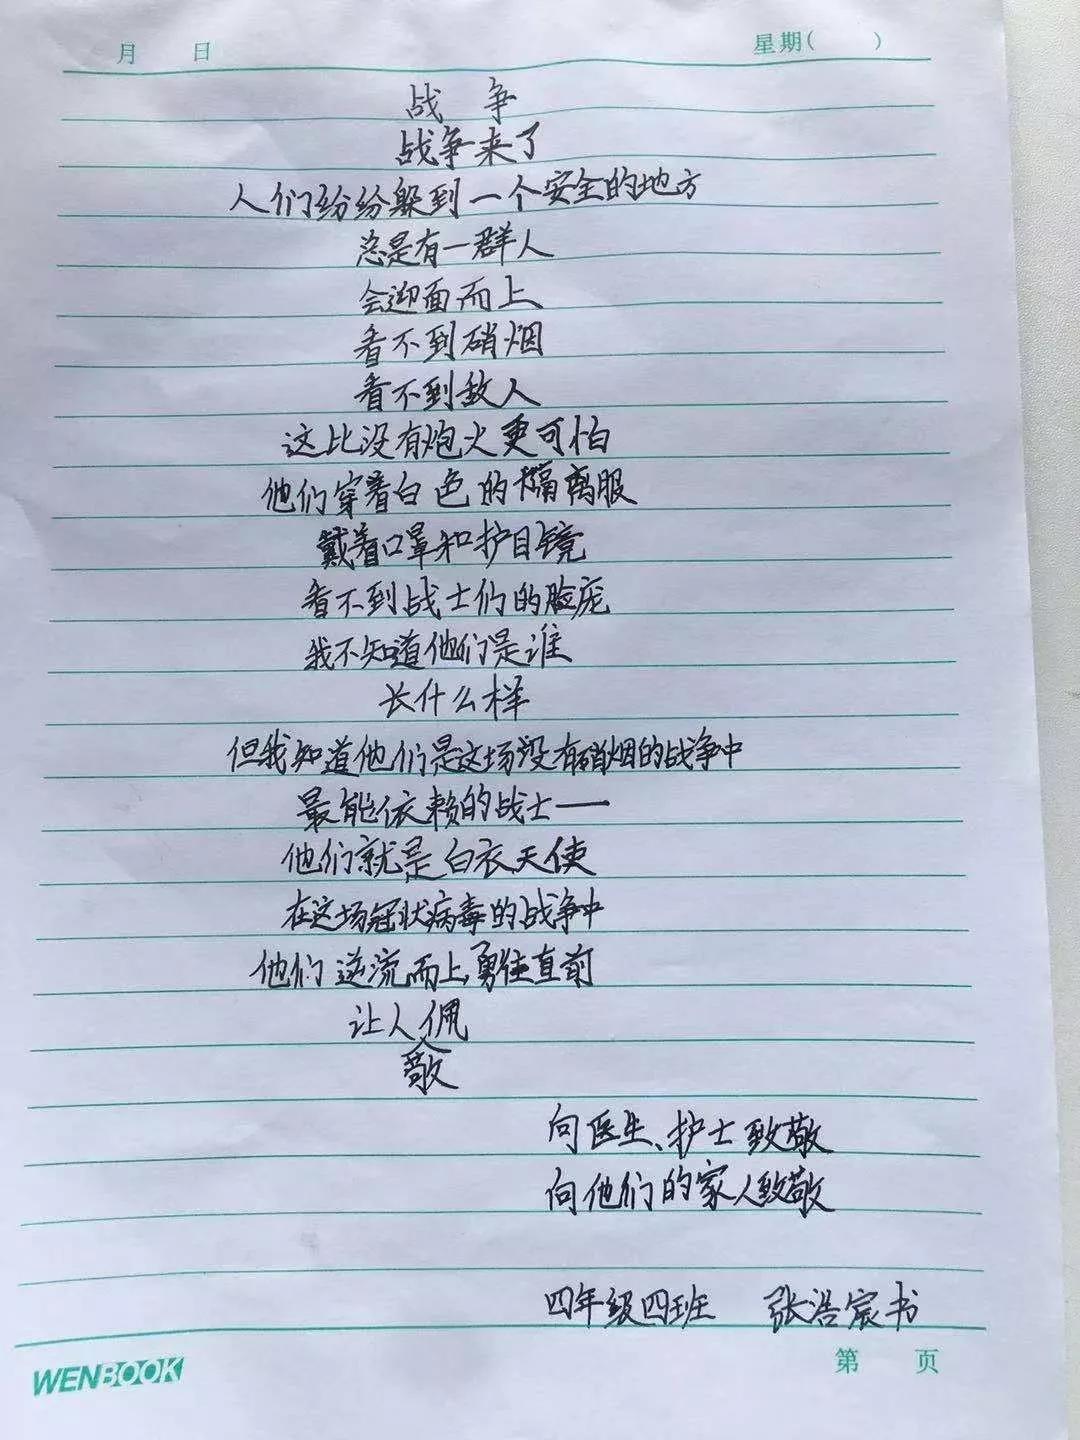 月 日 星期( )
战 争
战争来了
人们纷纷躲到一个安全的地方
总是有一群人
会迎面而上
看不到硝烟
看不到敌人
这比没有炮火更可怕
他们穿着白色的隔离服
戴着口罩和护目镜
看不到战士们的脸庞
我不知道他们是谁
长什么样
但我知道他们是这场没有硝烟的战争中
最能依赖的战士——
他们就是白衣天使
在这场冠状病毒的战争中
他们逆流而上,勇往直前
让人佩
敬
向医生、护士致敬
向他们的家人致敬
四年级四班 张浩宸书
WENBOOK 第 页